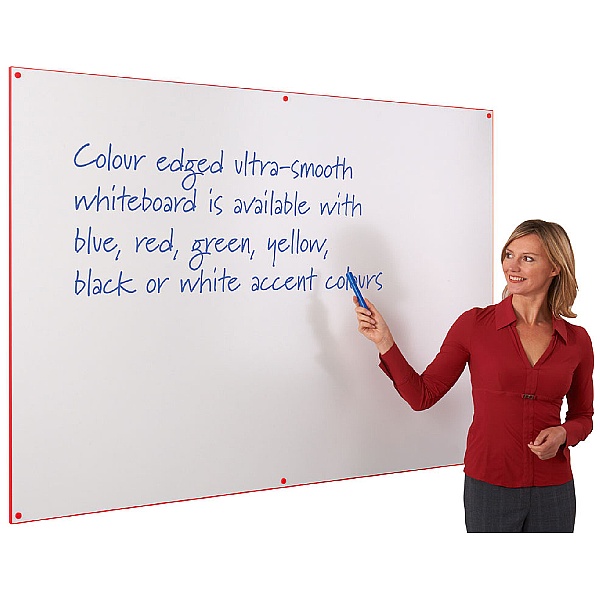 Colour edged ultra-smooth
whiteboard is available with
blue, red, green, yellow,
black or white accent colours